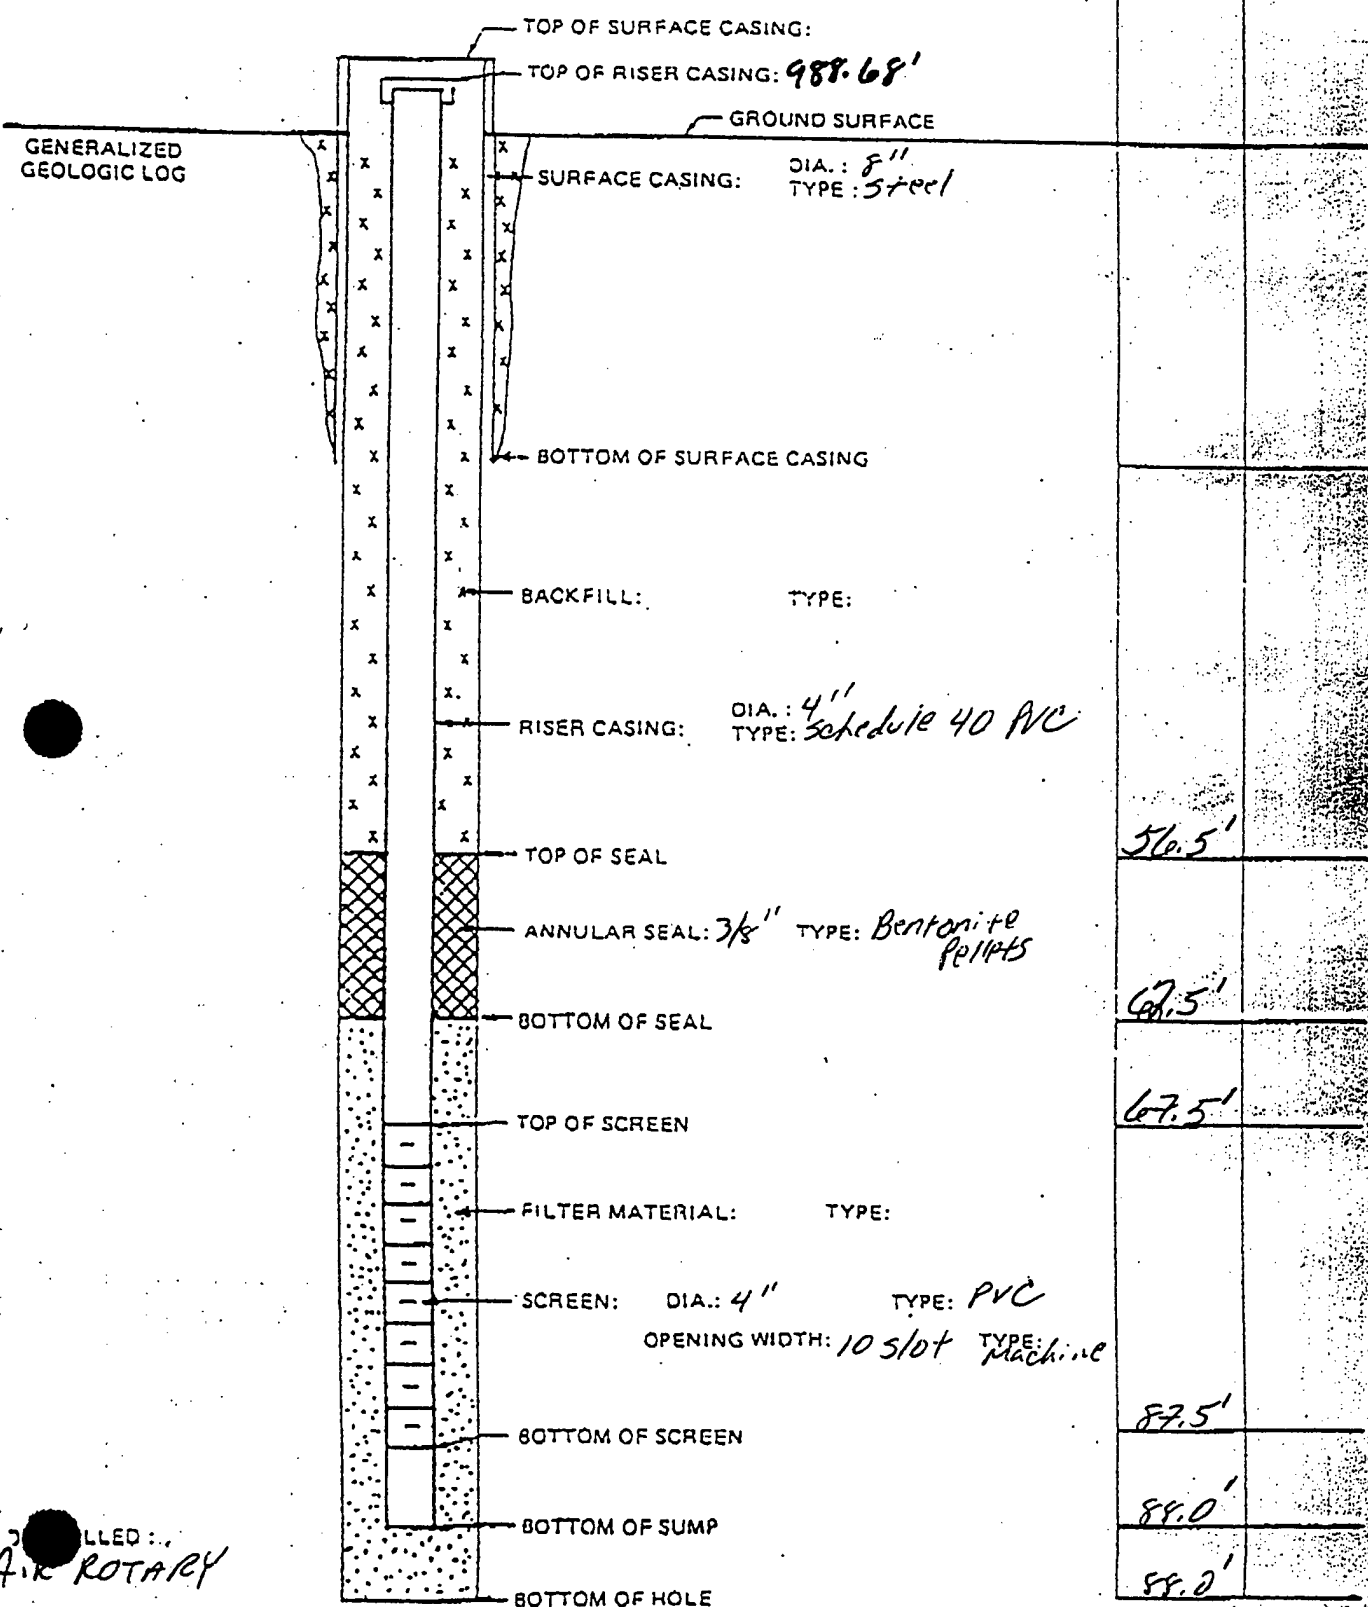 TOP OF SURFACE CASING:
TOP OF RISER CASING: 988.68'
GROUND SURFACE
GENERALIZED
GEOLOGIC LOG
SURFACE CASING: DIA.: 8"
TYPE: Steel
BOTTOM OF SURFACE CASING
BACKFILL: TYPE:
RISER CASING: DIA.: 4"
TYPE: Schedule 40 PVC
56.5'
TOP OF SEAL
ANNULAR SEAL: 3/8" TYPE: Bentonite
Pellets
62.5'
BOTTOM OF SEAL
67.5'
TOP OF SCREEN
FILTER MATERIAL: TYPE:
SCREEN: DIA.: 4" TYPE: PVC
OPENING WIDTH: 10 slot TYPE: Machine
87.5'
BOTTOM OF SCREEN
88.0'
BOTTOM OF SUMP
LLED:
Air ROTARY
88.0'
BOTTOM OF HOLE